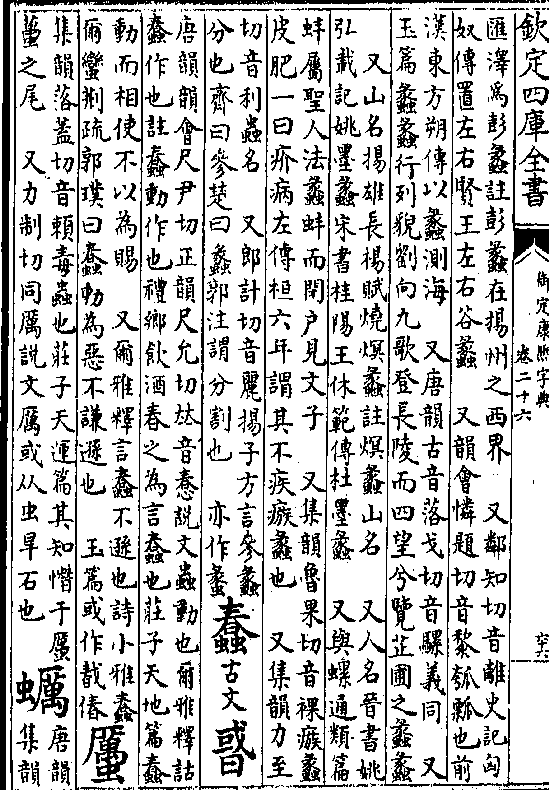 欽定四庫全書
御定康熙字典
卷二十六
匯澤為彭蠡註彭蠡在揚州之西界　又鄰知切音離史記匈
奴傳置左右賢王左右谷蠡　又韻會憐題切音黎瓠瓢也前
漢東方朔傳以蠡測海　又唐韻古音落戈切音騾義同　又
玉篇蠡蠡行列貌劉向九歌登長陵而四望兮覽芷圃之蠡蠡
　又山名揚雄長楊賦燒熐蠡註熐蠡山名　又人名晉書姚
弘載記姚墨蠡宋書桂陽王休範傳杜墨蠡　又與螺通類篇
蚌屬聖人法蠡蚌而閉戶見文子　又集韻魯果切音裸瘯蠡
皮肥一曰疥病左傳桓六年謂其不疾瘯蠡也　又集韻力至
切音利蟲名　又郎計切音麗揚子方言參蠡
分也齊曰參楚曰蠡郭注謂分割也　亦作𧓽 蠢古文𢧨
唐韻韻會尺尹切正韻尺允切𠀤音惷說文蟲動也爾雅釋詁
蠢作也註蠢動作也禮鄉飲酒春之為言蠢也莊子天地篇蠢
動而相使不以為賜　又爾雅釋言蠢不遜也詩小雅蠢
爾蠻荆疏郭璞曰蠢動為惡不謙遜也　玉篇或作𢧨偆 蠆
集韻落蓋切音賴毒蟲也莊子天運篇其知憯于蠣 唐韻
蠆之尾　又力制切同厲說文厲或从虫旱石也　蠣集韻